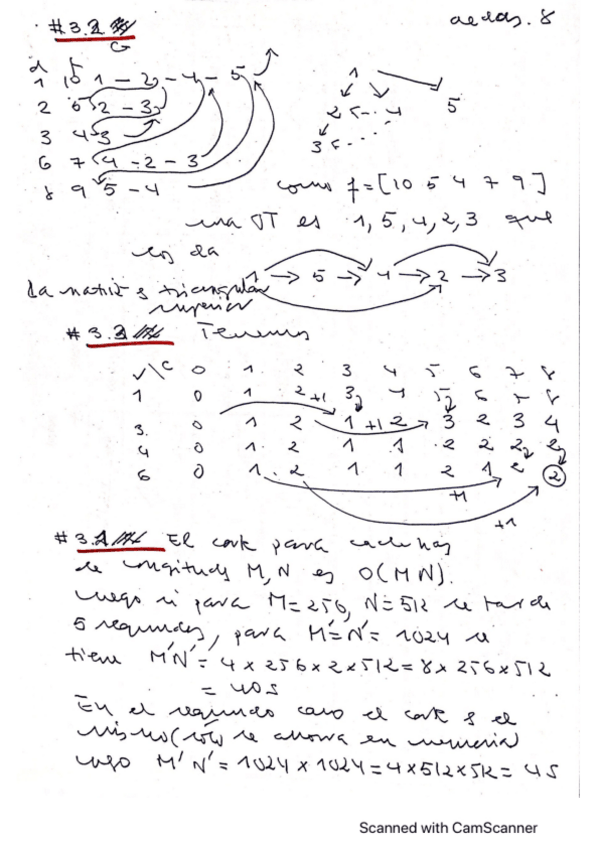 #3.2
aedas. 8
G
d f
1 10 1 - 2 - 4 - 5
2 5 2 - 3
3 4 3
6 7 4 - 2 - 3
8 9 5 - 4
1
2 4 5
3
como f = [10 5 4 7 9]
una OT es 1, 5, 4, 2, 3 que
nos da
1 → 5 → 4 → 2 → 3
La matriz es triangular
superior
#3.3 Tenemos
v\c 0 1 2 3 4 5 6 7 8
1 0 1 2 3 4 5 6 7 8
3 0 1 2 1 2 3 2 3 4
4 0 1 2 1 1 2 2 2 2
6 0 1 2 1 1 2 1 2 2
+1
+1
+1
+1
#3. El coste para cadenas
de longitudes M, N es O(MN).
Luego si para M=256, N=512 se tarda
5 segundos, para M'=N'=1024 se
tiene M'N' = 4 x 256 x 2 x 512 = 8 x 256 x 512
= 40s
En el segundo caso el coste es el
mismo (sólo se ahorra en memoria
luego M'N' = 1024 x 1024 = 4 x 512 x 512 = 4S
Scanned with CamScanner